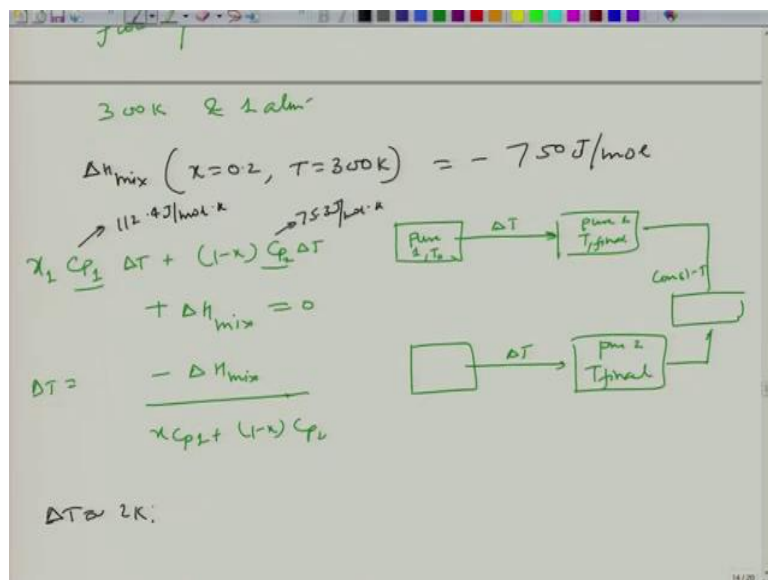 300K & 1 atm
ΔH mix (x=0.2, T=300K) = - 750 J/mol
112.4 J/mol.K
75.3 J/mol.K
x₁ Cp₁ ΔT + (1-x) Cp₂ ΔT
+ ΔH mix = 0
ΔT = - ΔH mix
x Cp₁ + (1-x) Cp₂
ΔT ≈ 2K.
Pure 1, T₀
ΔT
T, final
Const-T
ΔT
pure 2
T final
14/20